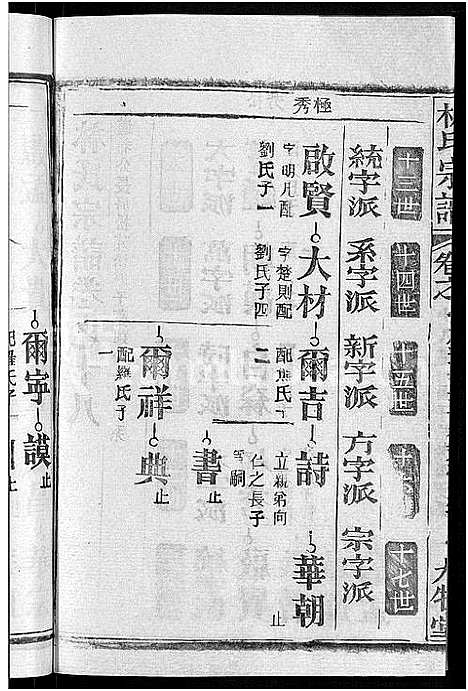 林氏宗譜
十三世
十四世
十五世
十七世
統字派
系字派
新字派
方字派
宗字派
極秀
啟賢
字明凡配
劉氏子一
大材
字楚則配
劉氏子四
爾吉
配熊氏子
二
詩
立親弟向
仁之長子
雪嗣
華朝
止
書
止
爾祥
配羅氏子
一
典
止
爾寧
謨
止
止